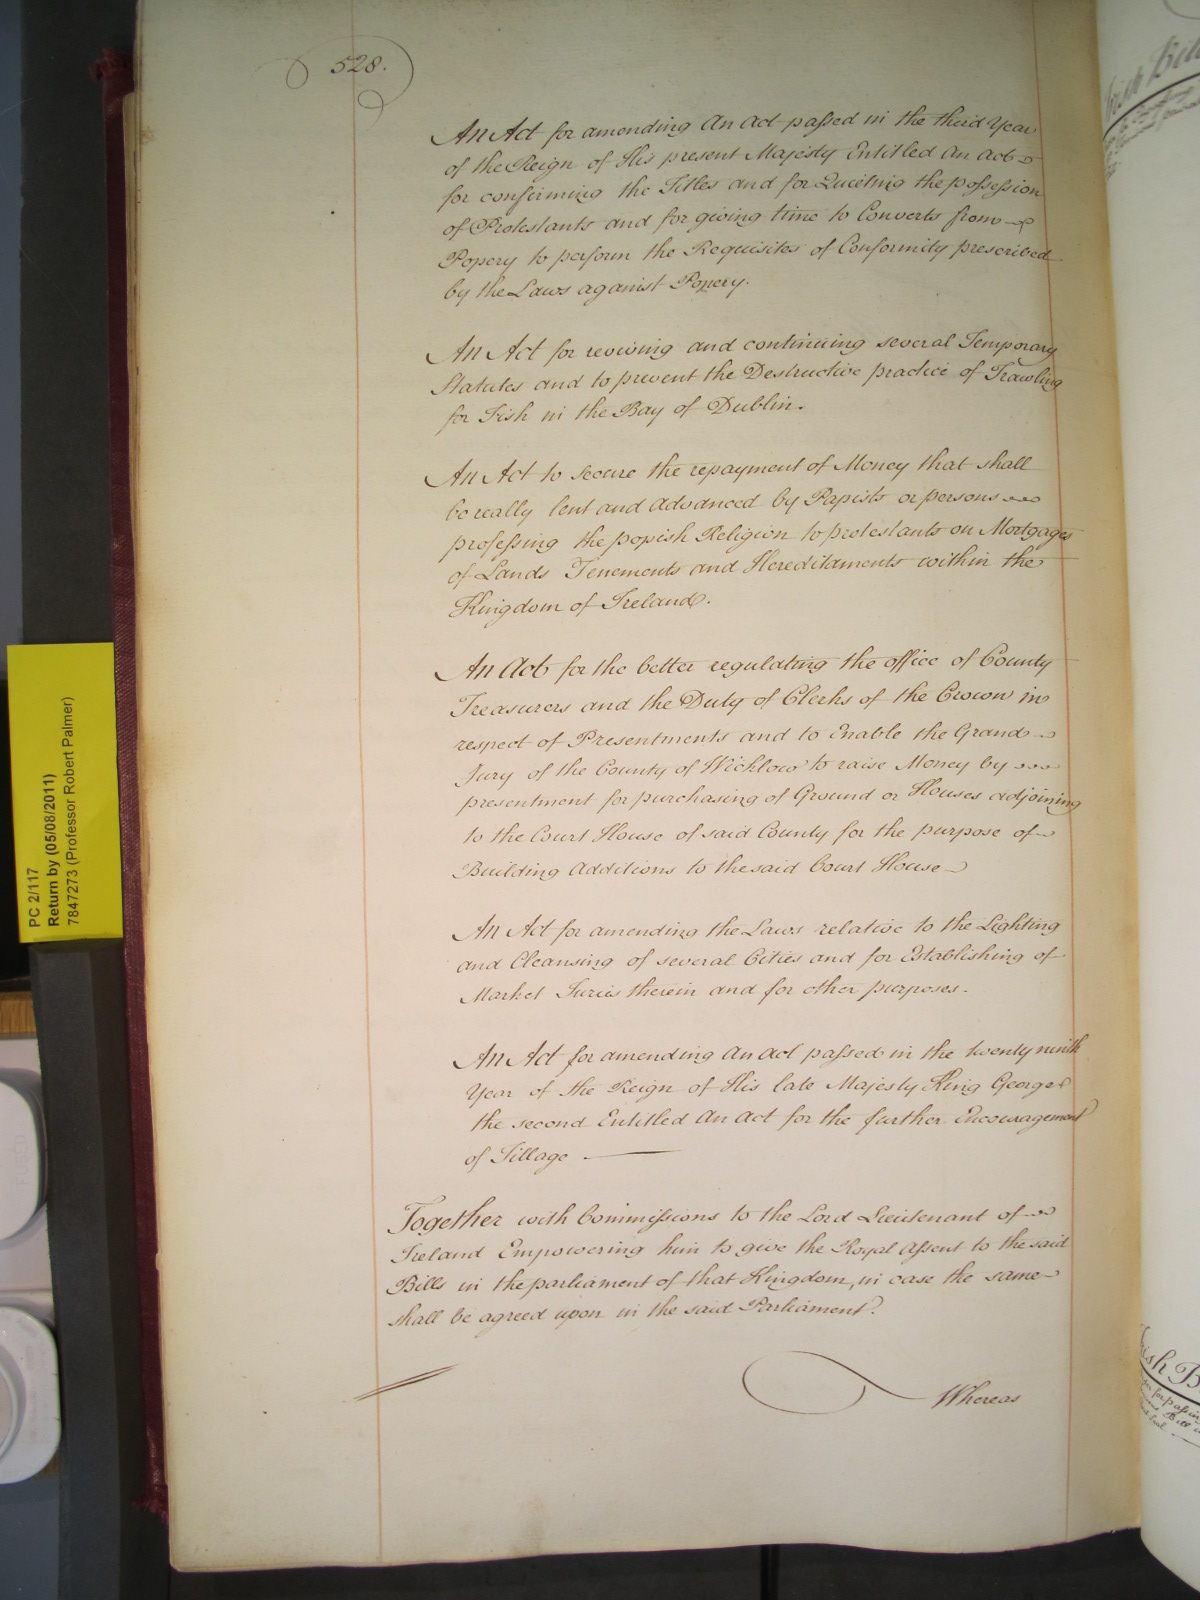 528.
An Act for amending An Act passed in the third Year
of the Reign of His present Majesty Entitled An Act
for confirming the Titles and for Quieting the possession
of Protestants and for giving time to Converts from
Popery to perform the Requisites of Conformity prescribed
by the Laws against Popery.
An Act for reviving and continuing several Temporary
Statutes and to prevent the Destructive practice of Trawling
for Fish in the Bay of Dublin.
An Act to secure the repayment of Money that shall
be really lent and advanced by Papists or persons
professing the popish Religion to protestants on Mortgages
of Lands Tenements and Hereditaments within the
Kingdom of Ireland.
An Act for the better regulating the office of County
Treasurers and the Duty of Clerks of the Crown in
respect of Presentments and to Enable the Grand
Jury of the County of Wicklow to raise Money by
presentment for purchasing of Ground or Houses adjoining
to the Court House of said County for the purpose of
Building Additions to the said Court House
An Act for amending the Laws relative to the Lighting
and Cleansing of several Cities and for Establishing of
Market Juries therein and for other purposes.
An Act for amending An Act passed in the twenty ninth
Year of the Reign of His late Majesty King George
the second Entitled An Act for the further Encouragement
of Tillage
Together with Commissions to the Lord Lieutenant of
Ireland Empowering him to give the Royal Assent to the said
Bills in the parliament of that Kingdom, in case the same
shall be agreed upon in the said Parliament.
Whereas
PC 2/117
Return by (05/08/2011)
7847273 (Professor Robert Palmer)